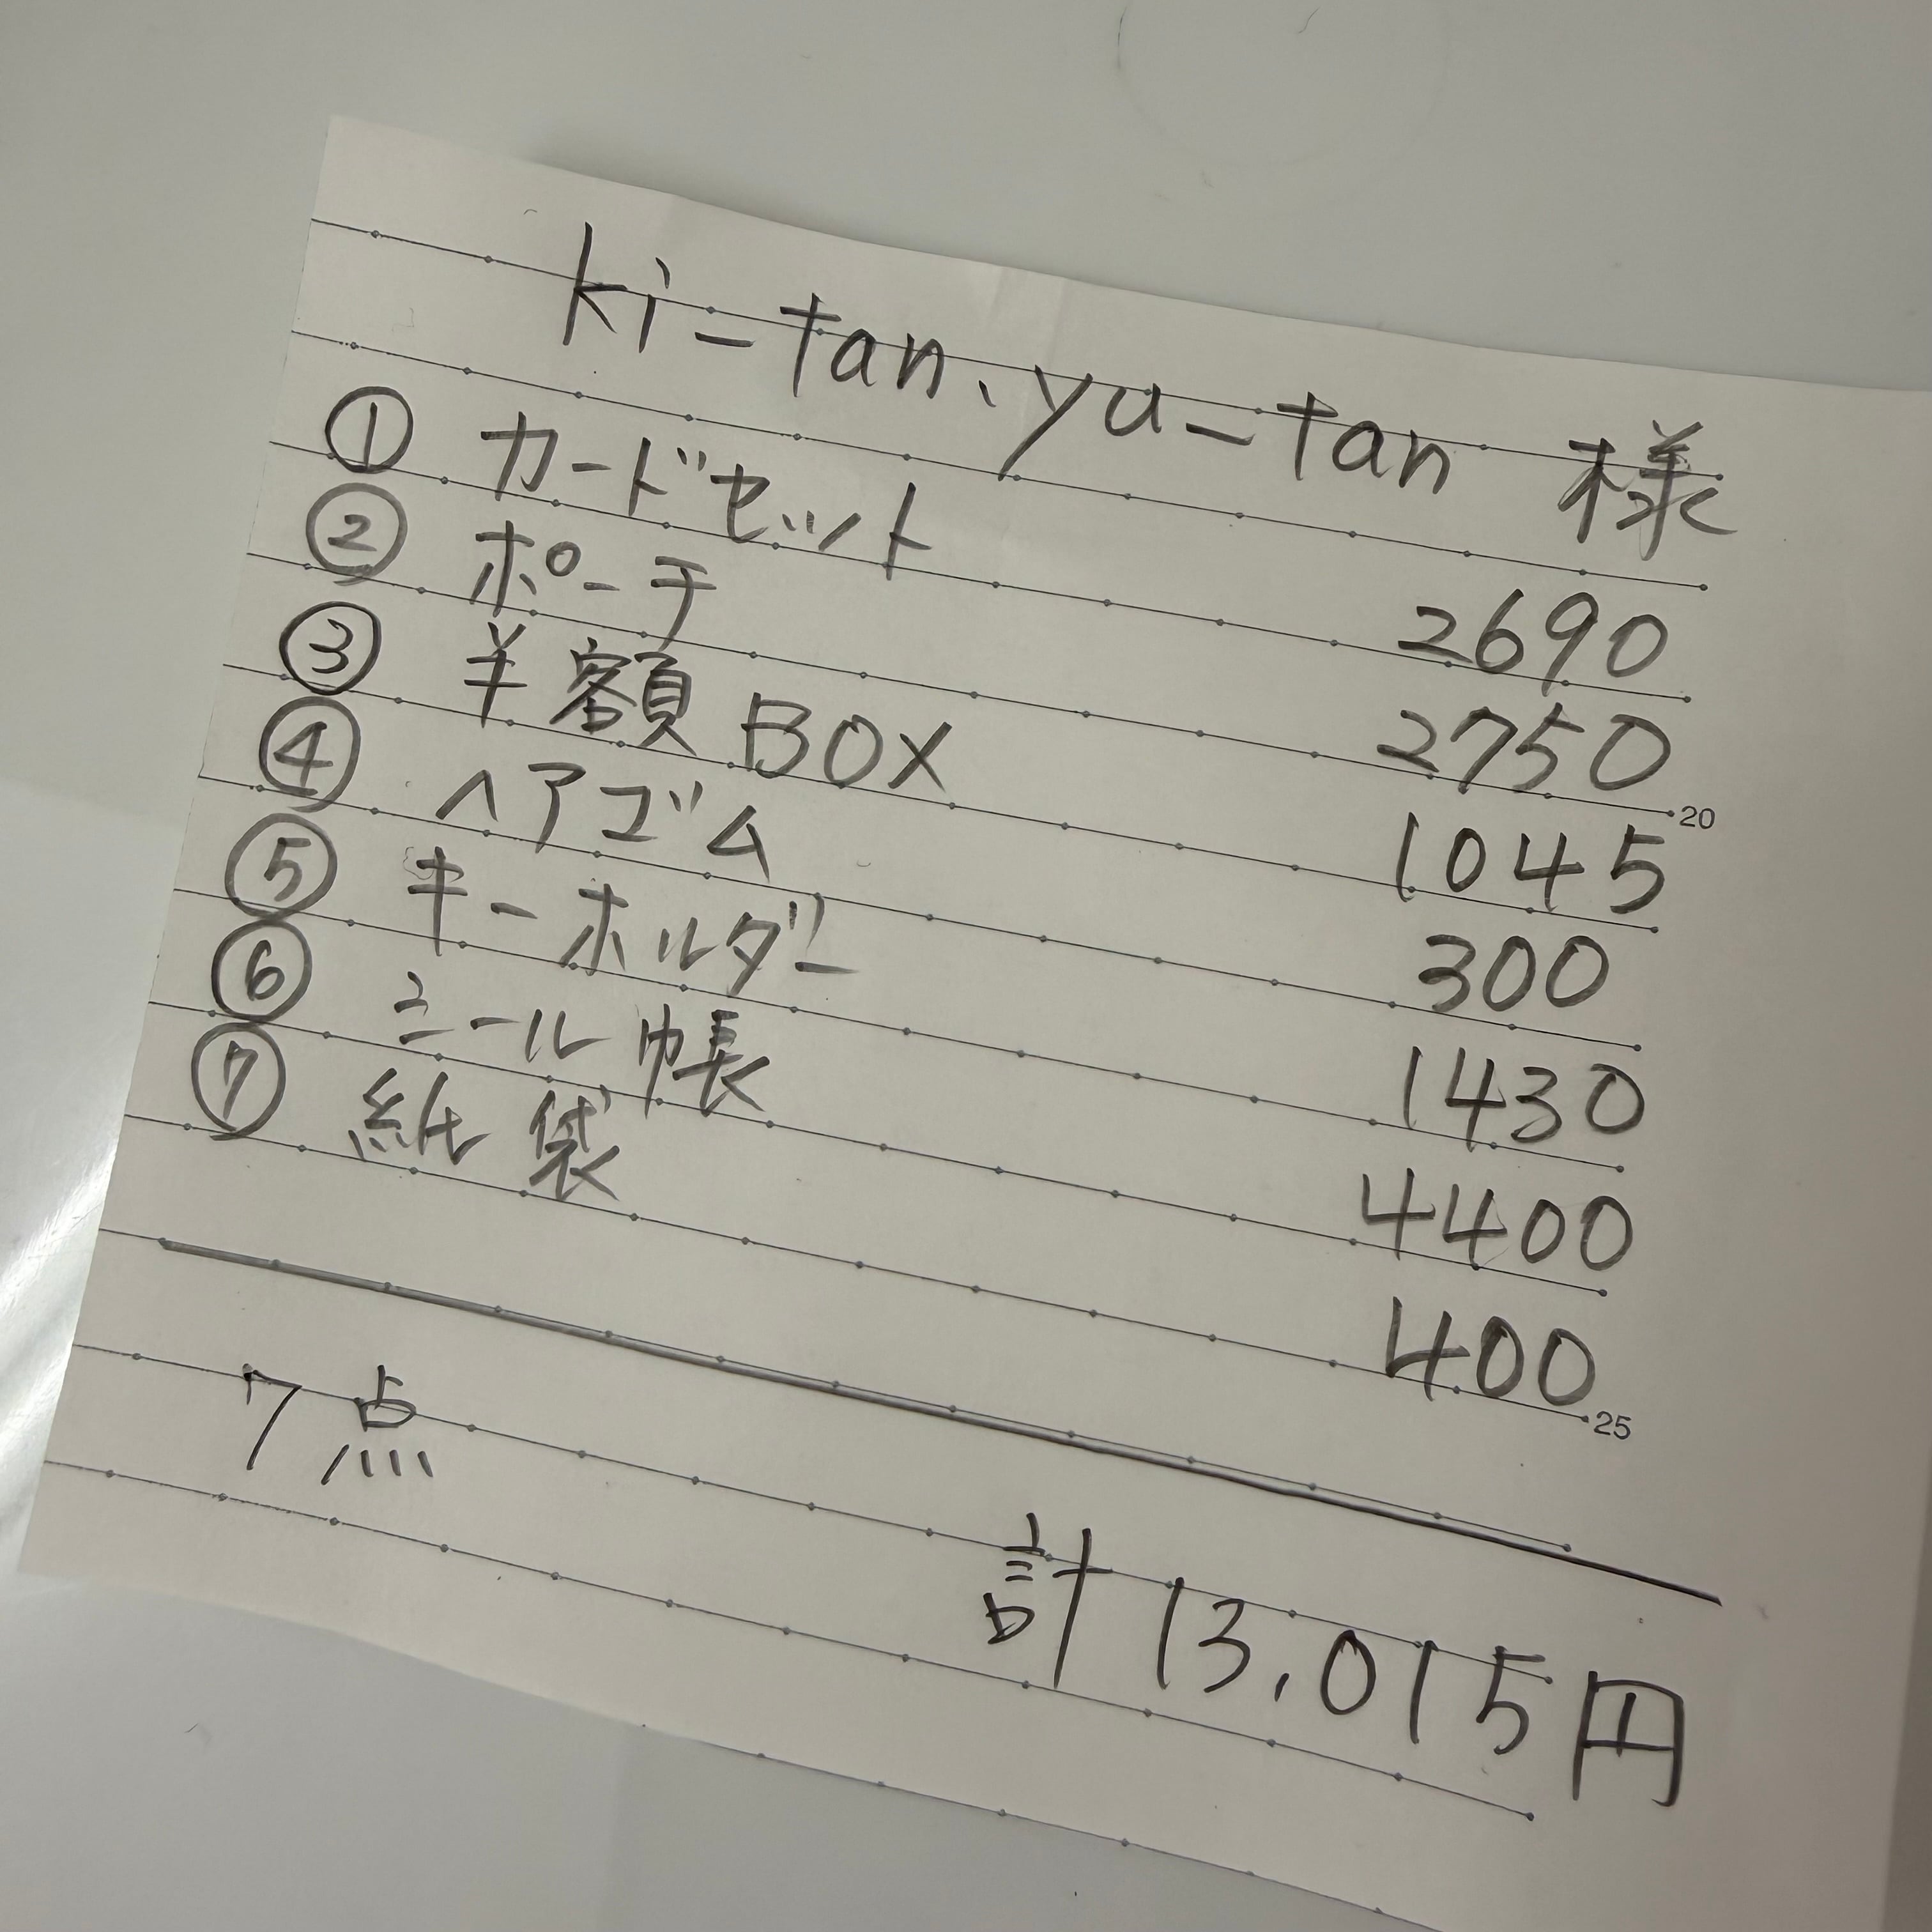 ki-tan.yu-tan 様
① カードセット 2690
② ポーチ 2750
③ 半額BOX 1045
④ ヘアゴム 300
⑤ キーホルダー 1430
⑥ シール帳 4400
⑦ 紙袋 400
20
25
7点
計13,015円